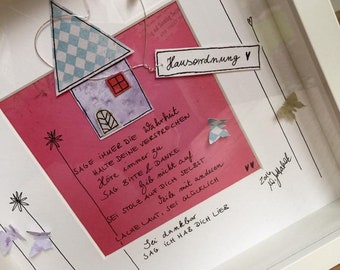 Hausordnung
SAGE IMMER DIE Wahrheit
HALTE DEINE VERSPRECHEN
Höre immer zu
SAG BITTE & DANKE
Gib nicht auf
SEI STOLZ AUF DICH SELBST
Teile mit anderen
LACHE LAUT, SEI GLÜCKLICH
Sei dankbar
SAG ICH HAB DICH LIEB